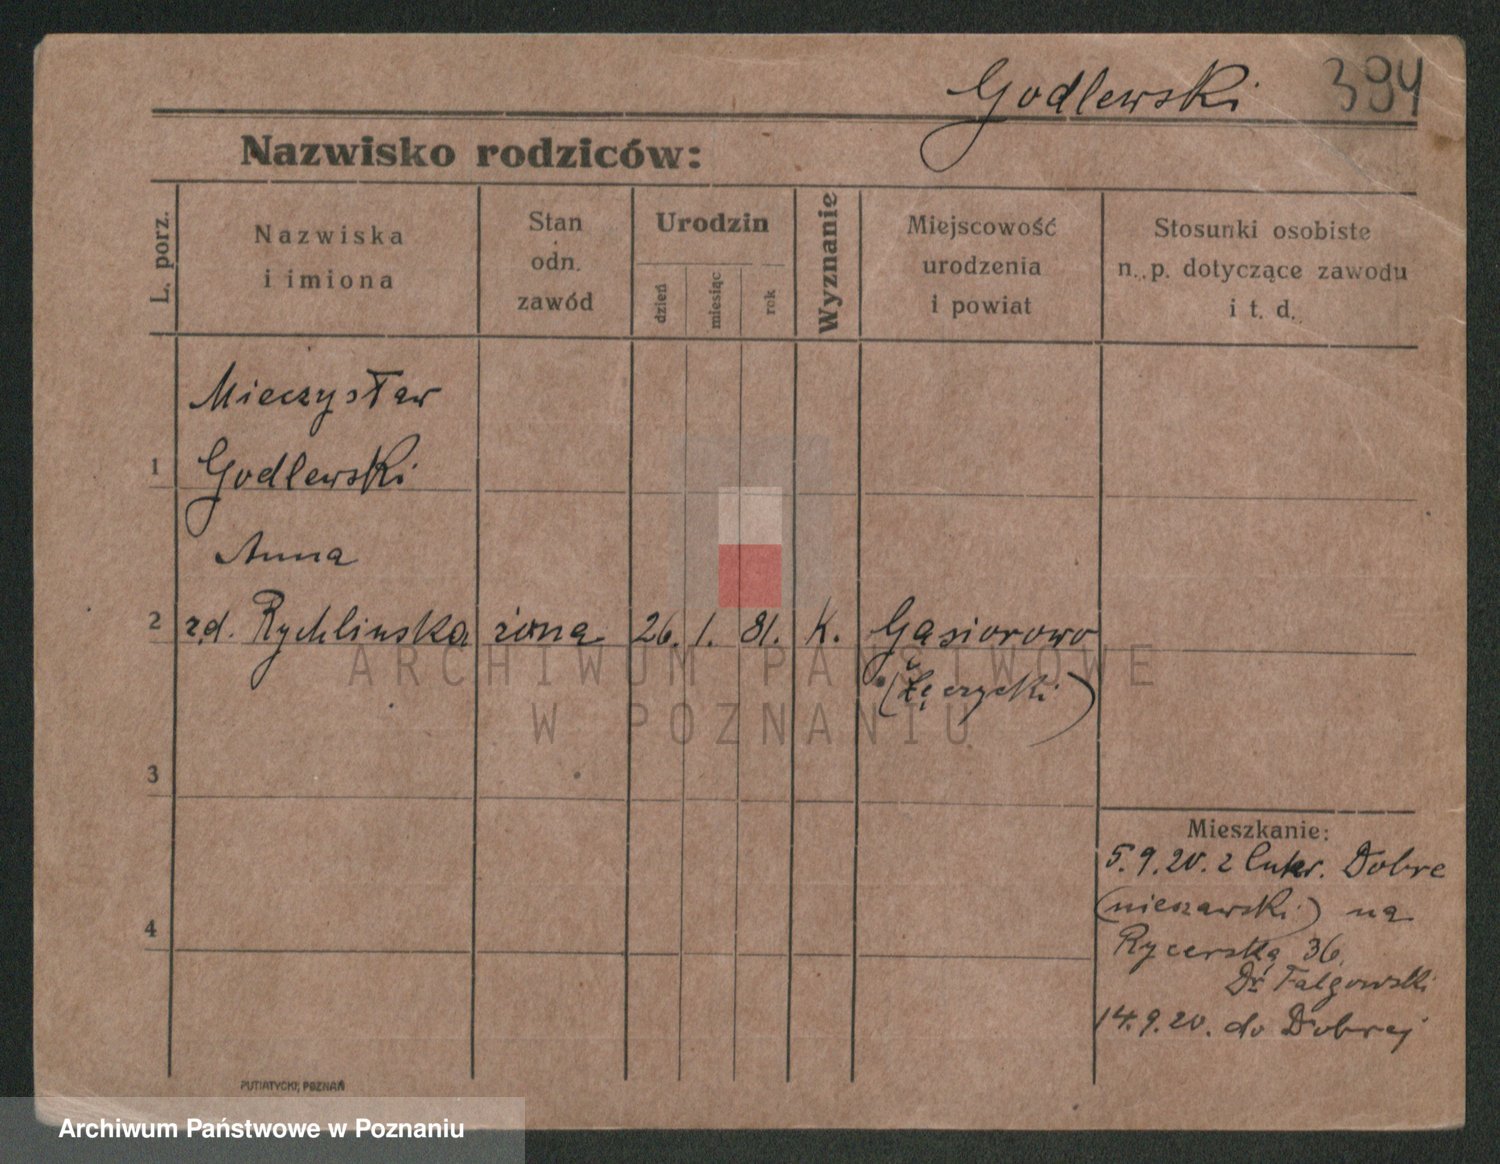 Godlewski 394
Nazwisko rodziców:
L. porz.
Nazwiska
i imiona
Stan
odn.
zawód
Urodzin
dzień
miesiąc
rok
Wyznanie
Miejscowość
urodzenia
i powiat
Stosunki osobiste
n. p. dotyczące zawodu
i t. d.
Mieczysław
1 Godlewski
Anna
2 zd. Rychlinska żona 26. 1. 81. K. Gąsiorowo
(Łęczycki)
3
4
Mieszkanie:
5.9.20. z Cukr. Dobre
(nieszawski) na
Rycerską 36.
Dr. Falgowski
14.9.20. do Dobrej
PUTIATYCKI, POZNAŃ
ARCHIWUM PAŃSTWOWE
W POZNANIU
Archiwum Państwowe w Poznaniu